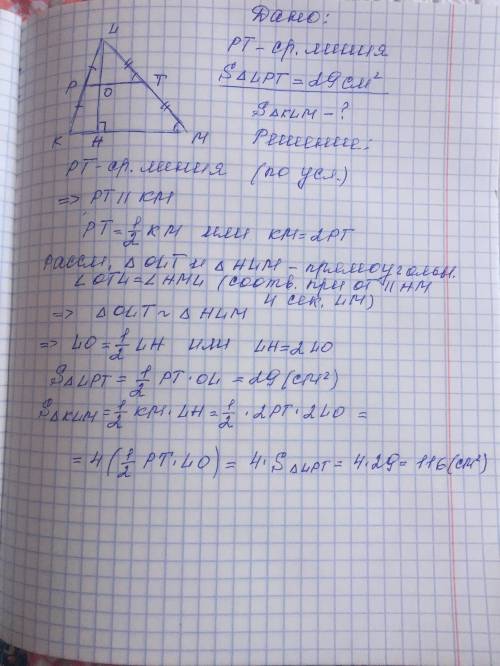 Дано:
PT - ср. линия
S△LPT = 29 см²
S△KLM - ?
Решение:
L
P
O
T
K
H
M
PT - ср. линия (по усл.)
=> PT || KM
PT = 1/2 KM или KM = 2PT
Рассм. △OLT и △HLM - прямоугольн.
∠OTL = ∠HML (соотв. при OT || HM
и сек. LM)
=> △OLT ~ △HLM
=> LO = 1/2 LH или LH = 2LO
S△LPT = 1/2 PT · OL = 29 (см²)
S△KLM = 1/2 KM · LH = 1/2 · 2PT · 2LO =
= 4 (1/2 PT · LO) = 4 · S△LPT = 4 · 29 = 116 (см²)